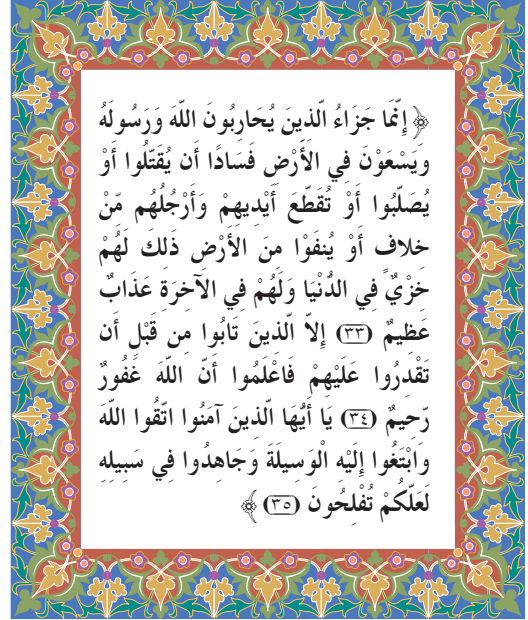 ﴿ إِنَّمَا جَزَاءُ الَّذِينَ يُحَارِبُونَ اللَّهَ وَرَسُولَهُ
وَيَسْعَوْنَ فِي الأَرْضِ فَسَادًا أَن يُقَتَّلُوا أَوْ
يُصَلَّبُوا أَوْ تُقَطَّعَ أَيْدِيهِمْ وَأَرْجُلُهُم مِّنْ
خِلافٍ أَوْ يُنفَوْا مِنَ الأَرْضِ ذَلِكَ لَهُمْ
خِزْيٌ فِي الدُّنْيَا وَلَهُمْ فِي الآخِرَةِ عَذَابٌ
عَظِيمٌ (٣٣) إِلاَّ الَّذِينَ تَابُوا مِن قَبْلِ أَن
تَقْدِرُوا عَلَيْهِمْ فَاعْلَمُوا أَنَّ اللَّهَ غَفُورٌ
رَّحِيمٌ (٣٤) يَا أَيُّهَا الَّذِينَ آمَنُوا اتَّقُوا اللَّهَ
وَابْتَغُوا إِلَيْهِ الْوَسِيلَةَ وَجَاهِدُوا فِي سَبِيلِهِ
لَعَلَّكُمْ تُفْلِحُونَ (٣٥) ﴾